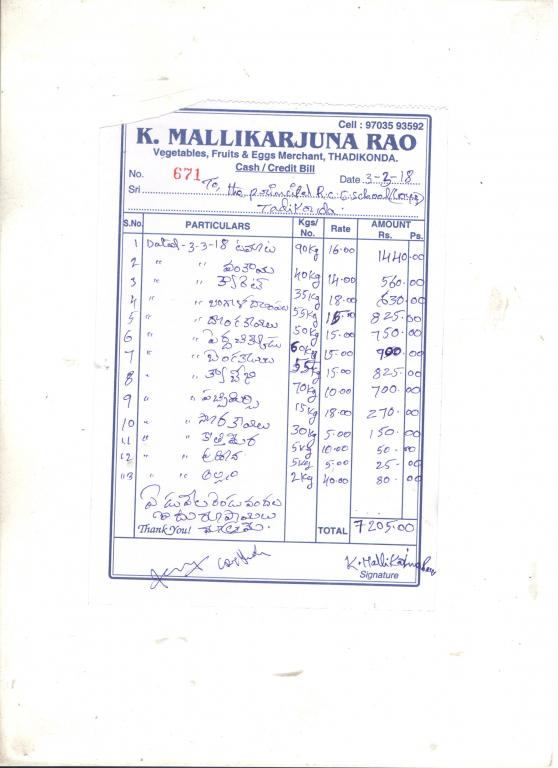 Cell : 97035 93592
K. MALLIKARJUNA RAO
Vegetables, Fruits & Eggs Merchant, THADIKONDA.
Cash / Credit Bill
No. 671 Date 3-3-18
Sri To, the principal R.C.E. school (Boys)
Tadikonda.
S.No. PARTICULARS Kgs/ No. Rate AMOUNT Rs. Ps.
1 Dated-3-3-18 టమాటు 90kg 16.00 1440.00
2 " " వంకాయ 40kg 14.00 560.00
3 " " క్యారెట్ 35kg 18.00 630.00
4 " " 55kg 15.00 825.00
5 " " దొండకాయలు 50kg 15.00 750.00
6 " " 60kg 15.00 900.00
7 " " బెండకాయలు 55kg 15.00 825.00
8 " " క్యాబేజి 70kg 10.00 700.00
9 " " పచ్చిమిర్చి 15kg 18.00 270.00
10 " " 30kg 5.00 150.00
11 " " కొత్తిమీర 5kg 10.00 50.00
12 " " పుదీన 5kg 5.00 25.00
13 " " అల్లం 2kg 40.00 80.00
ఏడువేల రెండువందల
Thank You! TOTAL 7205.00
K. Mallikarjuna Rao
Signature